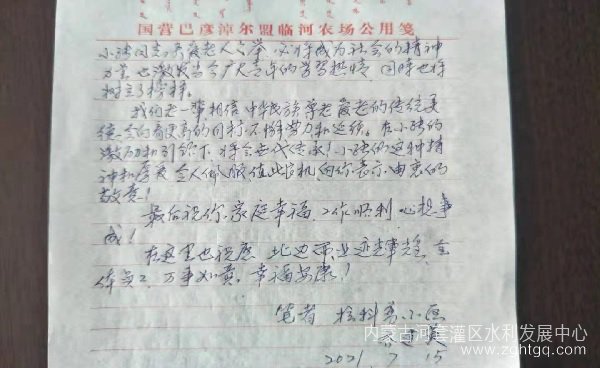 国营巴彦淖尔盟临河农场公用笺
小强同志尊爱老人之举，必将成为社会的精神
力量也激发当今广大青年的学习热情，同时也将
树立榜样。
我们老一辈相信中华民族尊老爱老的传统美
德会的有更高的
在小强的
激励和引领下将会世代传承！小强的这种精
神和厚爱令人佩服值此机向你表示由衷的
敬意！
最后祝你家庭幸福，工作顺利心想事
成！
在这里也祝愿
全
体员工万事如意，幸福安康！
笔者
2021.7.15
内蒙古河套灌区水利发展中心
www.zghtgq.com